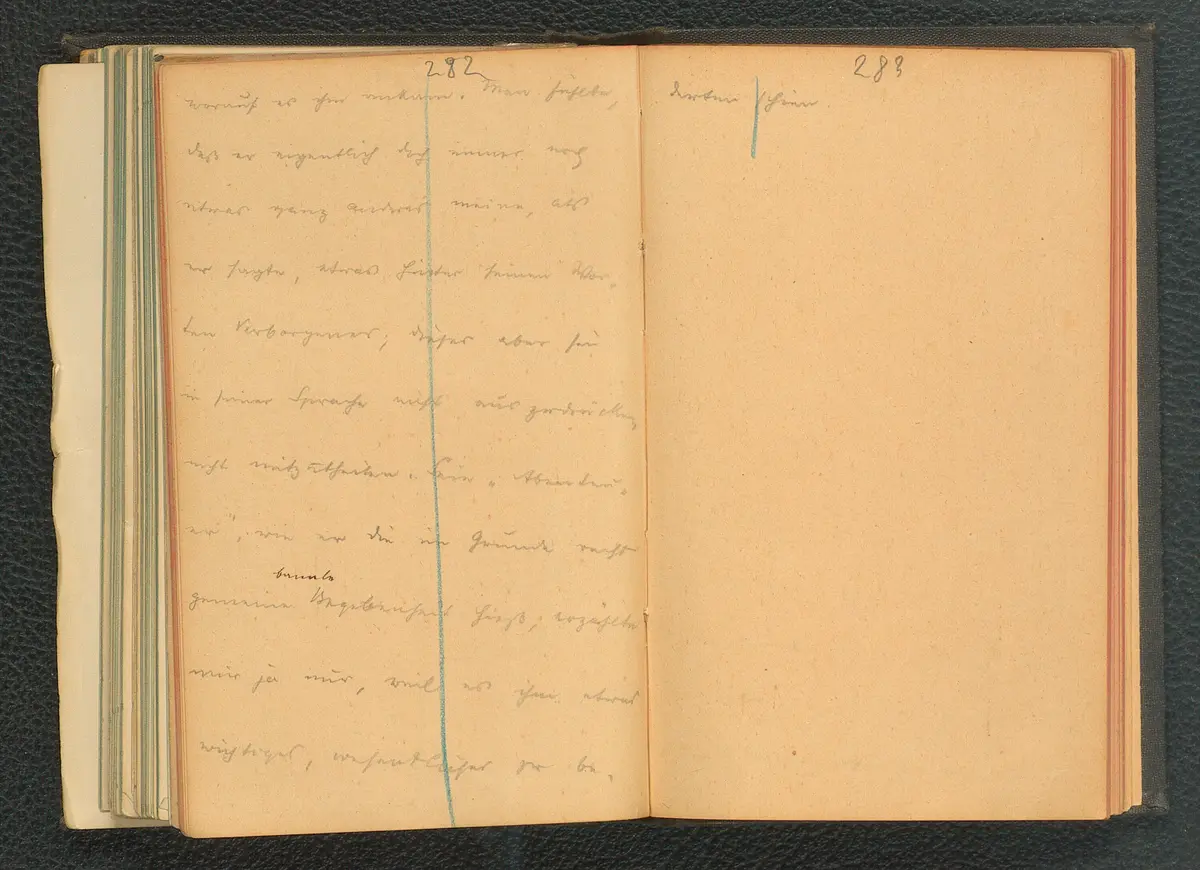 282
worauf es ihm ankam. Man fühlte,
daß er eigentlich doch immer noch
etwas ganz anderes meine, als
er sagte, etwas hinter seinen Wor-
ten Verborgenes, dieses aber sei
in seiner Sprache nicht auszudrücken
nicht mitzutheilen. Ein „Abenteu-
er“, wie er die im Grunde recht
banale
gemeine Begebenheit hieß, erzählte
mir ja nur, weil es ihm etwas
wichtiges, wesentliches zu be-
283
deuten schien.